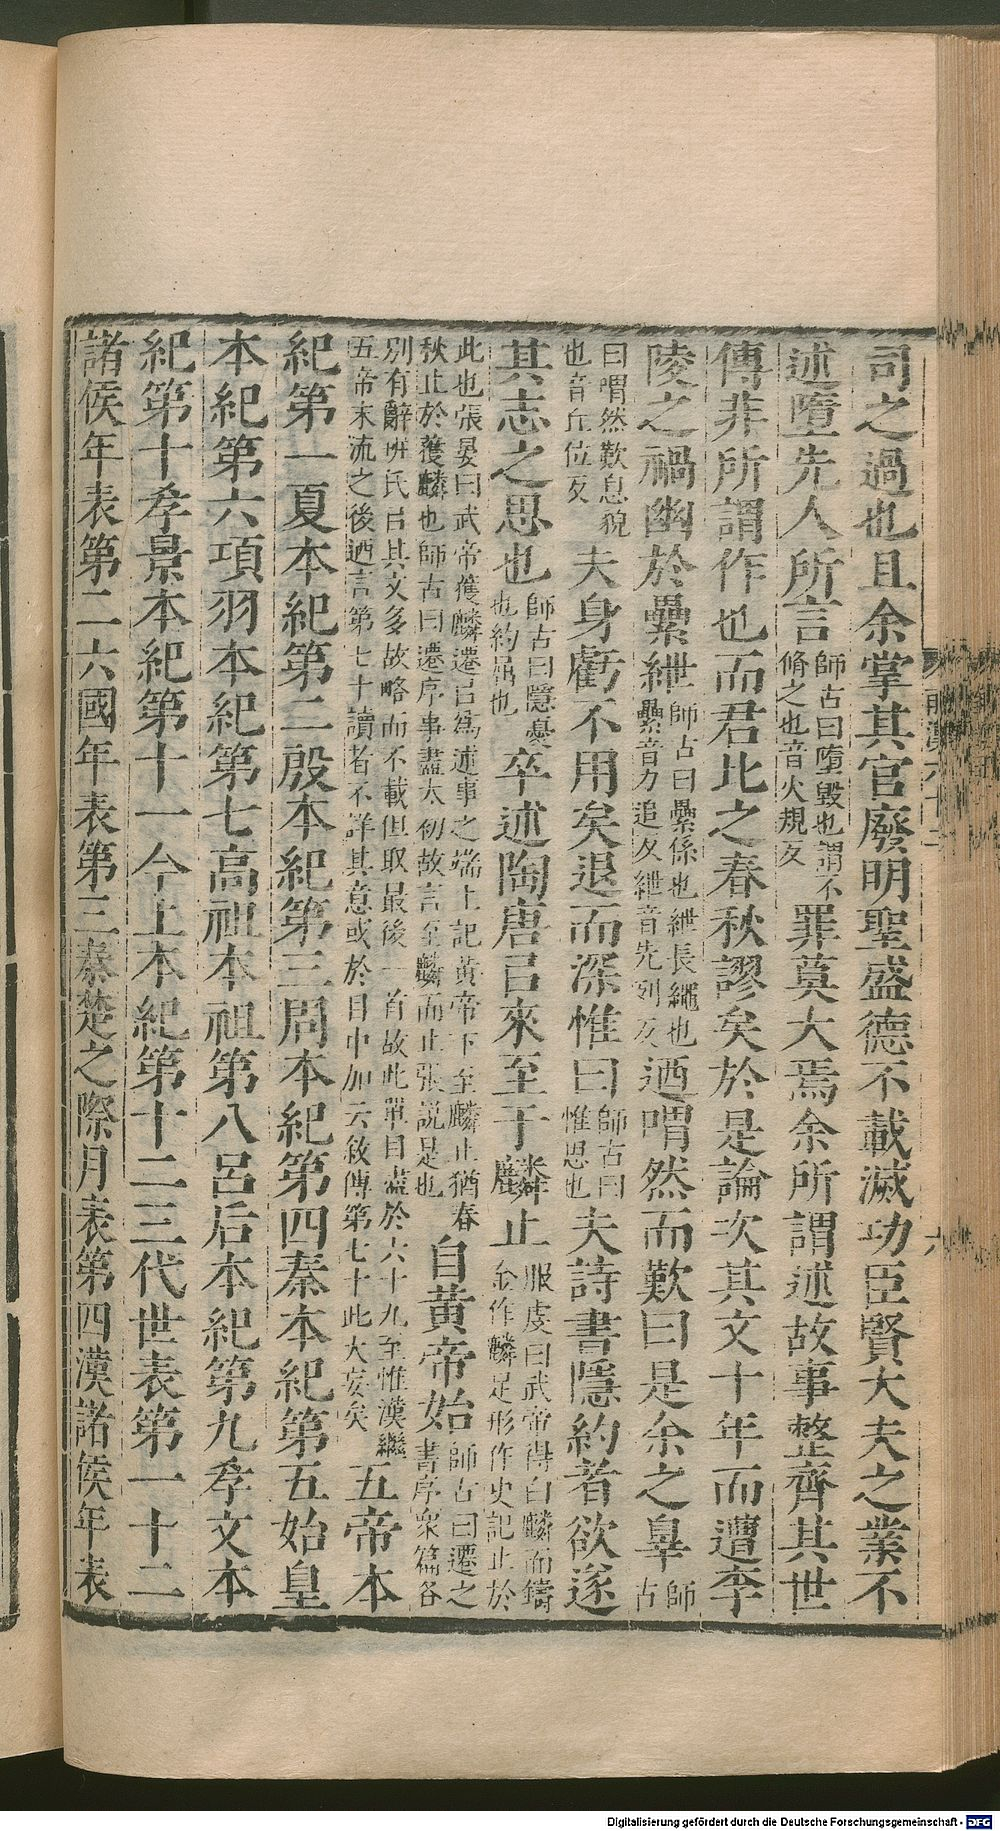 司之過也且余掌其官廢明聖盛德不載滅功臣賢大夫之業不
述墮先人所言師古曰墮毀也謂不脩之也音火規反罪莫大焉余所謂述故事整齊其世
傳非所謂作也而君比之春秋謬矣於是論次其文十年而遭李
陵之禍幽於纍紲師古曰纍係也紲長繩也纍音力追反紲音先列反迺喟然而歎曰是余之辠師古
曰喟然歎息貌也音丘位反夫身虧不用矣退而深惟曰師古曰惟思也夫詩書隱約者欲遂
其志之思也師古曰隱憂也約屈也卒述陶唐㠯來至于麟止服虔曰武帝得白麟而鑄金作麟足形作史記止於
此也張晏曰武帝獲麟遷㠯爲述事之端上記黄帝下至麟止猶春秋止於獲麟也師古曰遷序事盡太初故言至麟而止張說是也自黄帝始師古曰遷之書序衆篇各
別有辭班氏㠯其文多故略而不載但取最後一首故此單目盡於六十九至惟漢繼五帝末流之後迺言第七十讀者不詳其意或於目中加云敘傳第七十此大妄矣五帝本
紀第一夏本紀第二殷本紀第三周本紀第四秦本紀第五始皇
本紀第六項羽本紀第七高祖本祖第八呂后本紀第九孝文本
紀第十孝景本紀第十一今上本紀第十二三代世表第一十二
諸侯年表第二六國年表第三秦楚之際月表第四漢諸侯年表
六
Digitalisierung gefördert durch die Deutsche Forschungsgemeinschaft - DFG